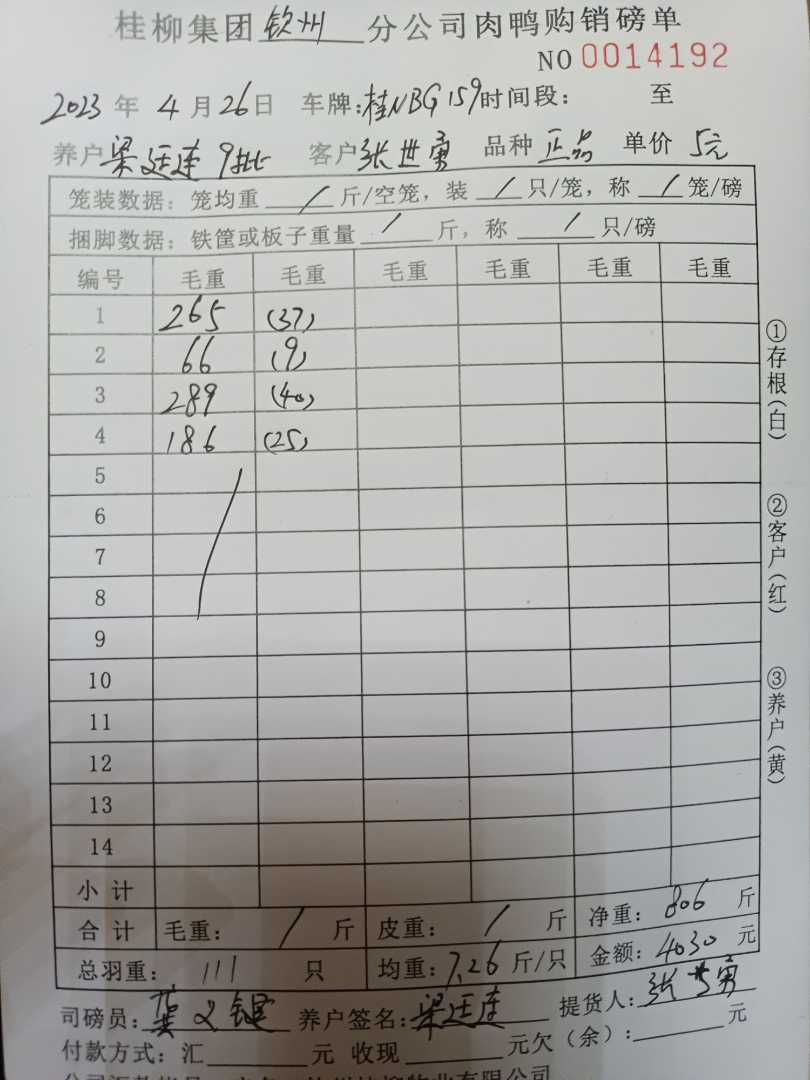 桂柳集团钦州分公司肉鸭购销磅单
NO 0014192
2023年4月26日 车牌:桂NBG159 时间段: 至
养户梁廷连9批 客户张世勇 品种正品 单价5元
笼装数据:笼均重 / 斤/空笼,装 / 只/笼,称 / 笼/磅
捆脚数据:铁筐或板子重量 / 斤,称 / 只/磅
编号 毛重 毛重 毛重 毛重 毛重 毛重
1 265 (37)
2 66 (9)
3 289 (40)
4 186 (25)
5
6
7
8
9
10
11
12
13
14
小计
合计 毛重: / 斤 皮重: / 斤 净重:806斤
总羽重:111只 均重:7.26斤/只 金额:4030元
司磅员:龚义键 养户签名:梁廷连 提货人:张世勇
付款方式:汇 元 收现 元欠(余): 元
①存根(白)
②客户(红)
③养户(黄)